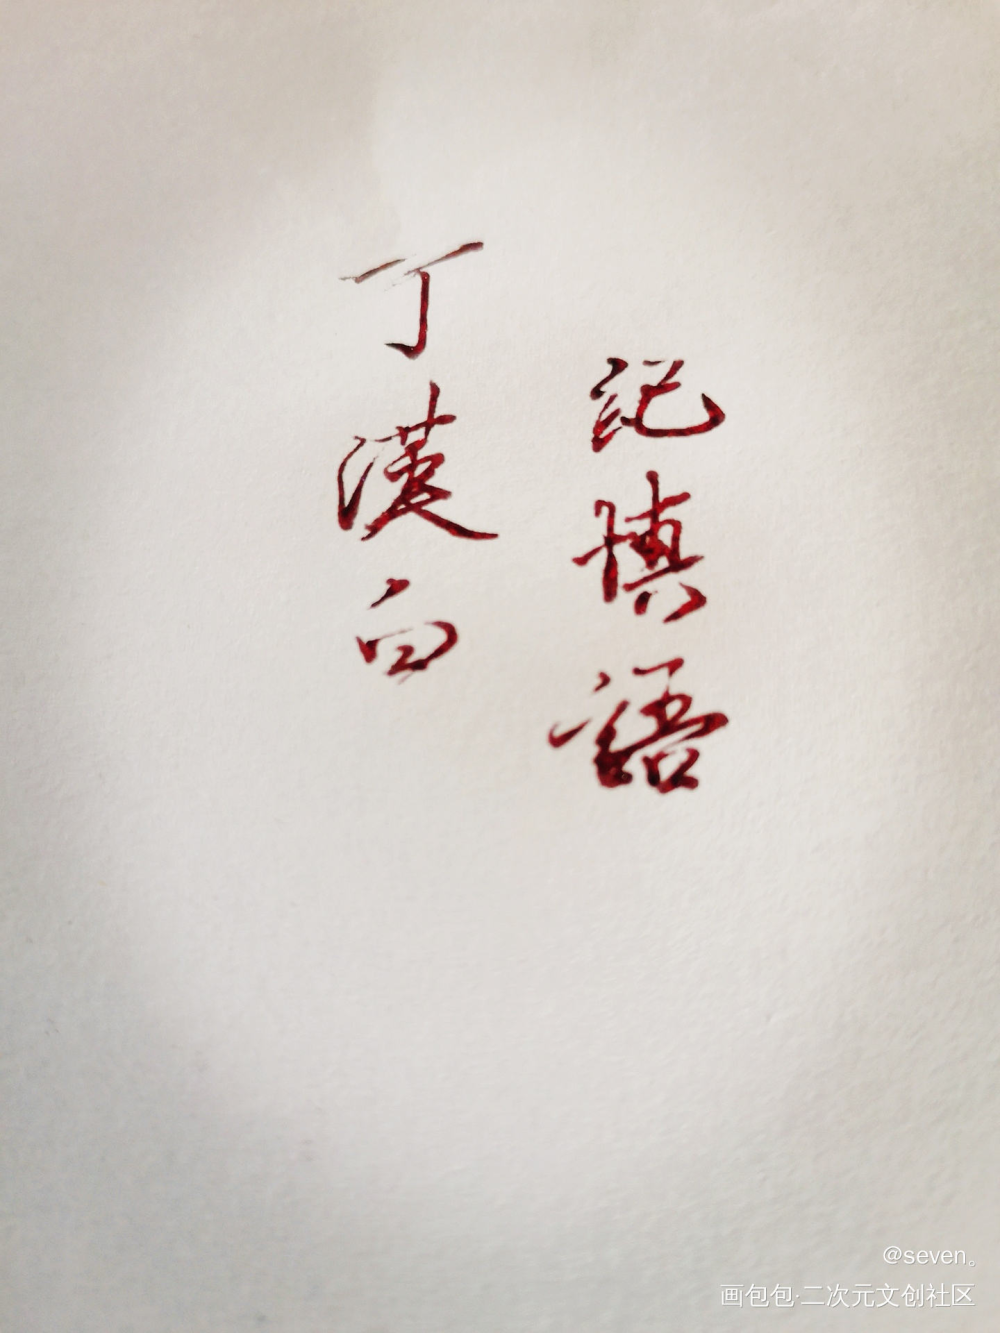 記慎語
丁漢白
@seven。
画包包·二次元文创社区